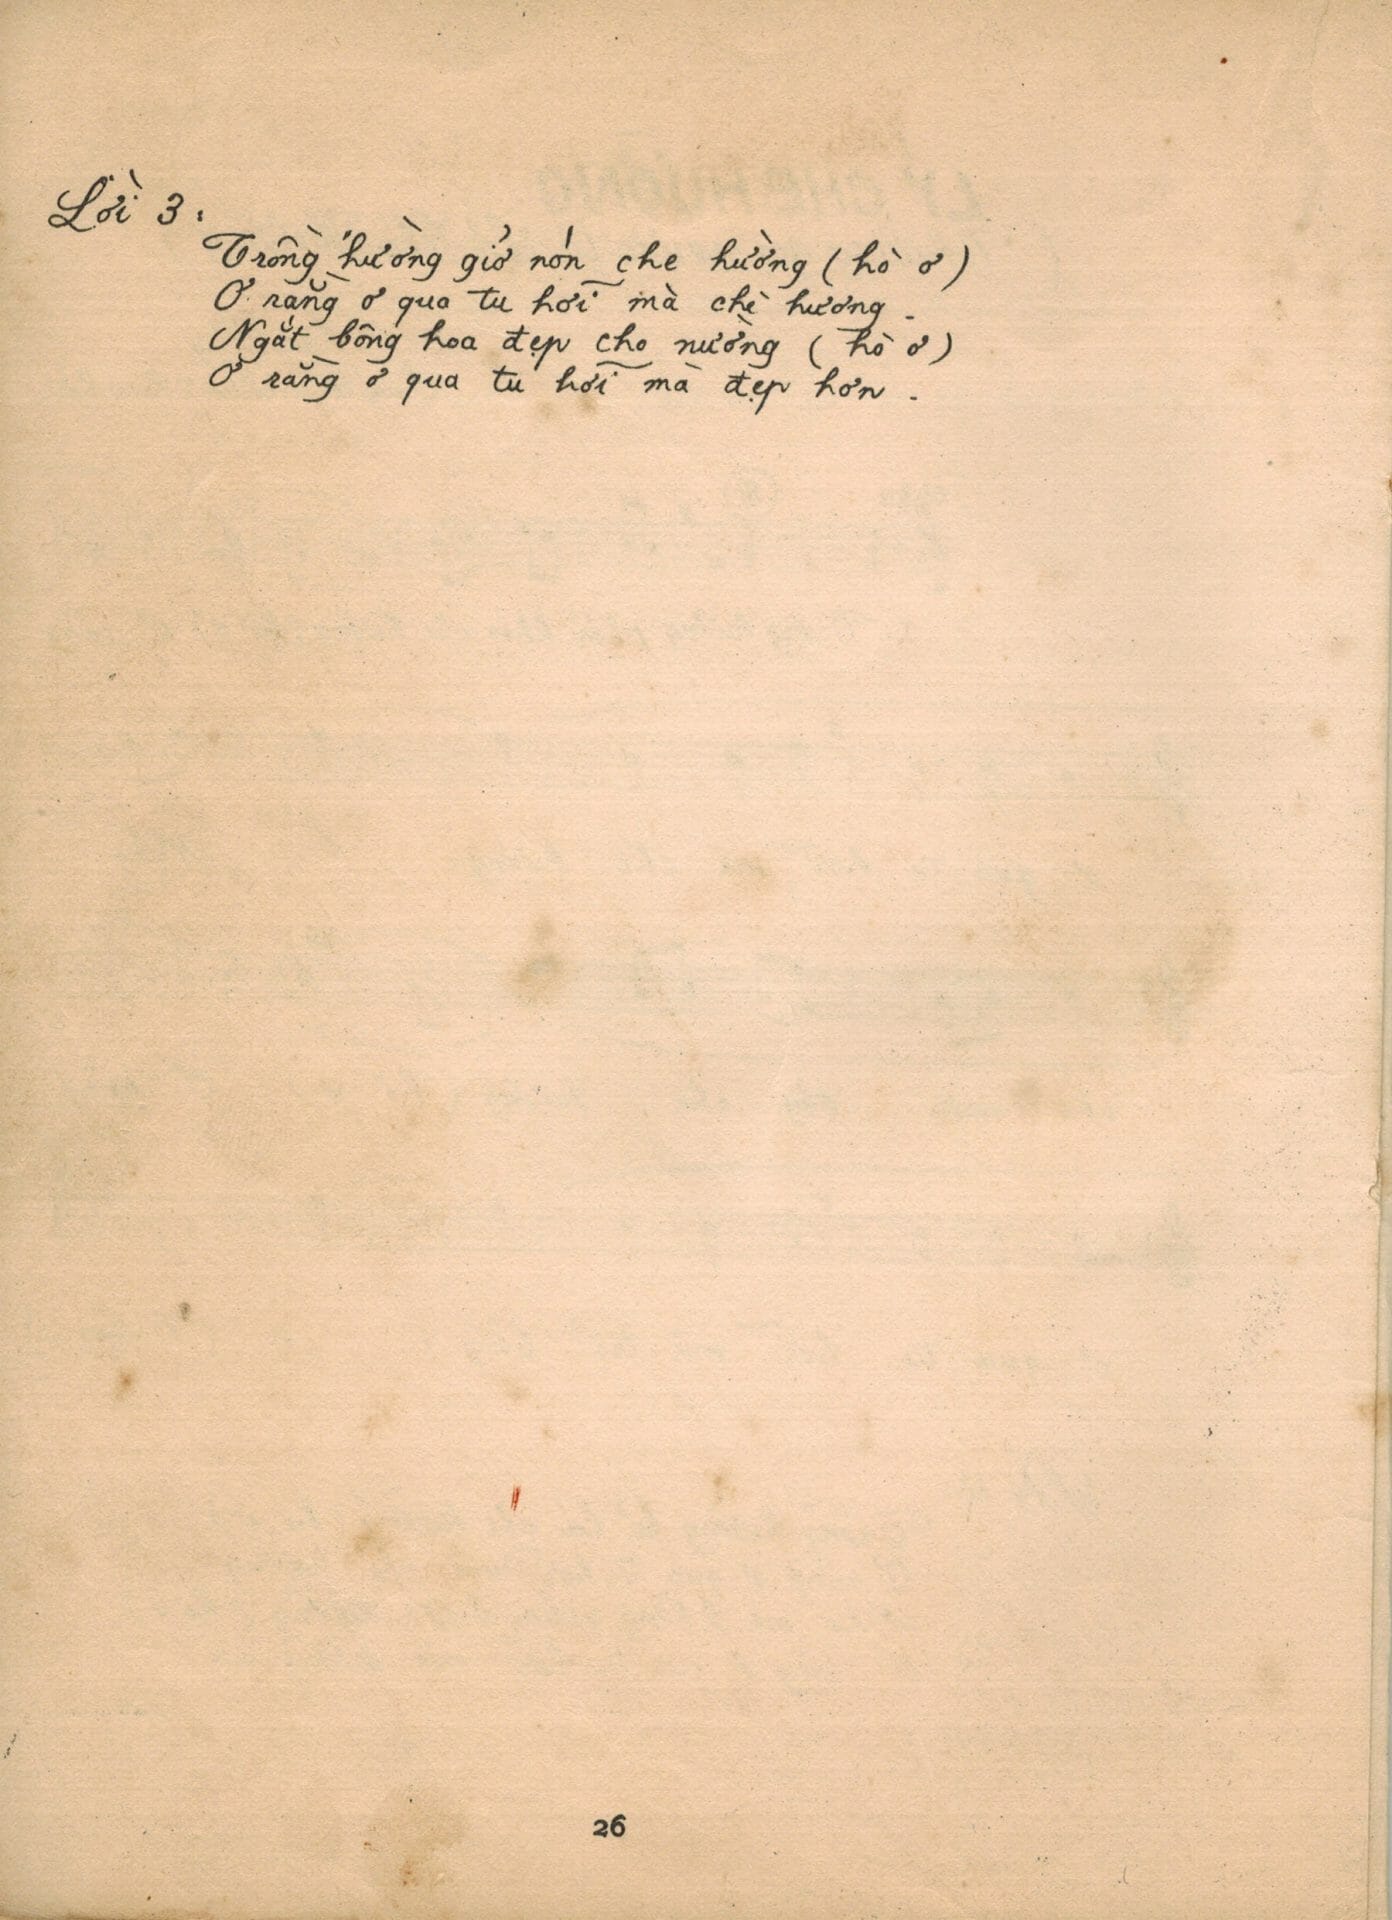 Lời 3:
Trồng hường giở nón che hường (hò ơ)
Ơ rằng ơ qua tu hơi mà chè hương.
Ngắt bông hoa đẹp cho nường (hò ơ)
Ơ rằng ơ qua tu hơi mà đẹp hơn.
26